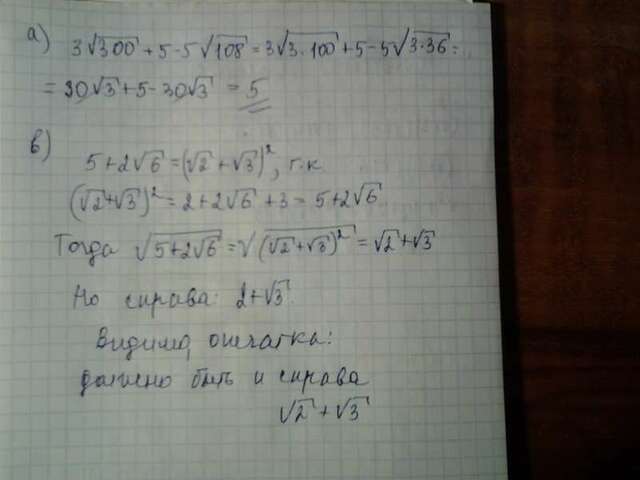 а) 3√300 + 5 - 5√108 = 3√3·100 + 5 - 5√3·36 =
= 30√3 + 5 - 30√3 = 5
в)
5 + 2√6 = (√2 + √3)², т.к.
(√2 + √3)² = 2 + 2√6 + 3 = 5 + 2√6
Тогда √5+2√6 = √(√2+√3)² = √2 + √3
Но справа: 2 + √3.
Видимо, опечатка:
должно быть и справа
√2 + √3